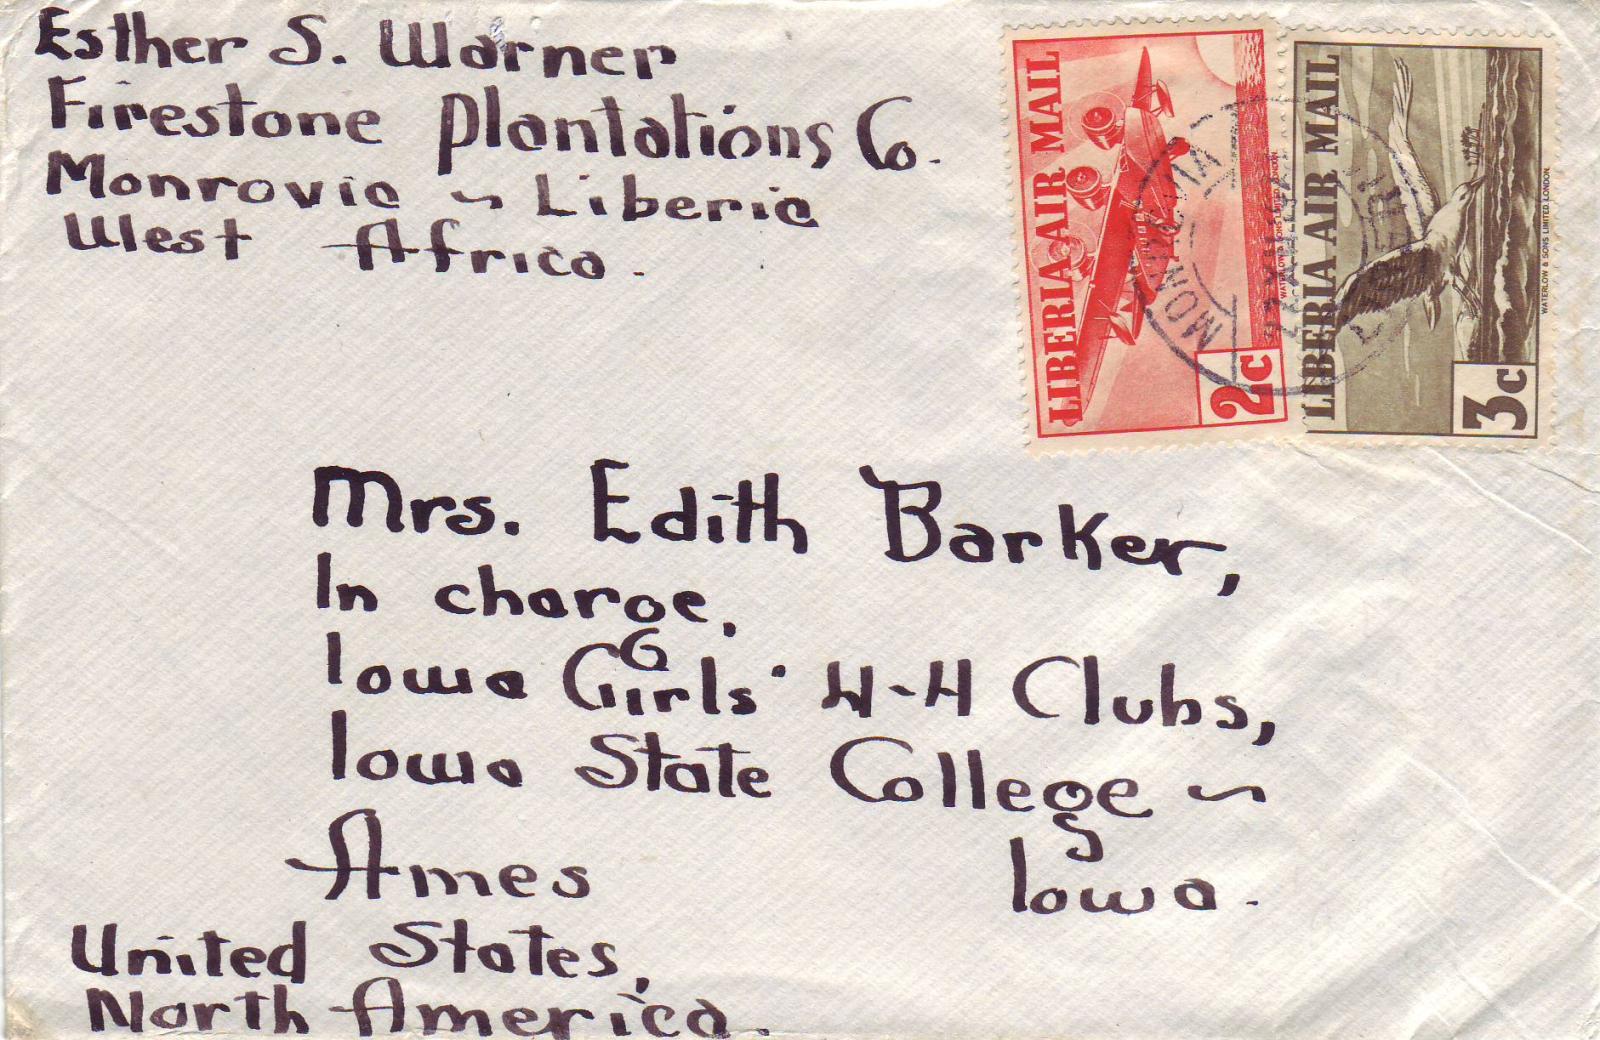 Esther S. Warner
Firestone Plantations Co.
Monrovia ~ Liberia
West Africa.
LIBERIA AIR MAIL
2c
WATERLOW & SONS LIMITED, LONDON.
LIBERIA AIR MAIL
3c
WATERLOW & SONS LIMITED, LONDON.
MONROVIA
Mrs. Edith Barker,
In charge,
Iowa Girls' 4-H Clubs,
Iowa State College ~
Ames Iowa.
United States,
North America.